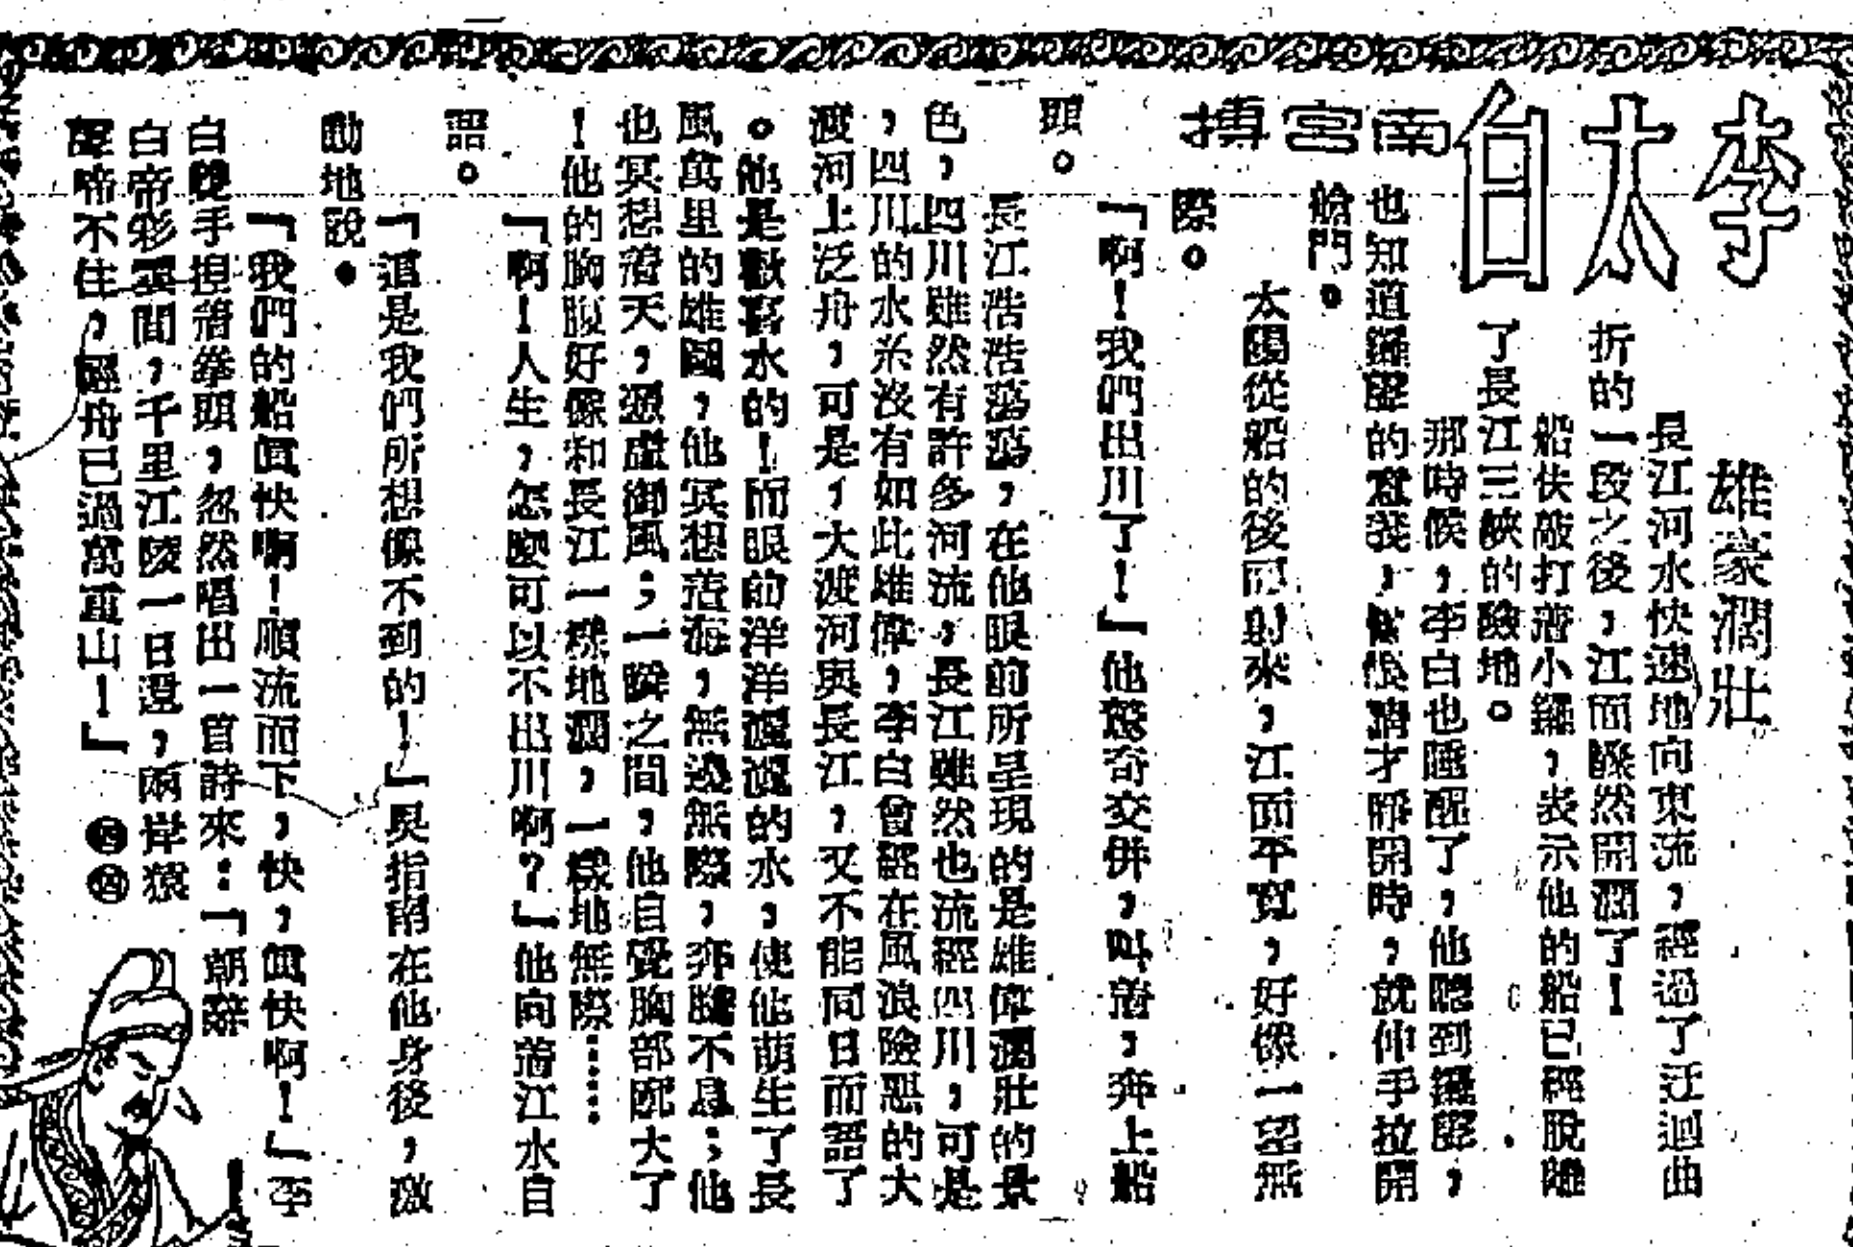 李太白
南宮搏
雄豪濶壯
長江河水快速地向東流，經過了迂迴曲
折的一段之後，江面驟然開濶了！
船伕敲打着小鑼，表示他的船已經脫離
了長江三峽的險地。
那時候，李白也睡醒了，他聽到鑼聲，
也知道鑼聲的意義，惺忪睛才睜開時，就伸手拉開
艙門。
太陽從船的後面射來，江面平寬，好像一望無
際。
「啊！我們出川了！」他驚奇交併，叫着，奔上船
頭。
長江浩浩蕩蕩，在他眼前所呈現的是雄偉濶壯的景
色，四川雖然有許多河流，長江雖然也流經四川，可是
，四川的水系沒有如此雄偉，李白曾經在風浪險惡的大
渡河上泛舟，可是，大渡河與長江，又不能同日而語了
。他是歡喜水的！而眼前洋洋漫漫的水，使他萌生了長
風萬里的雄圖，他冥想着海，無邊無際，奔騰不息；他
也冥想着天，憑虛御風；一瞬之間，他自覺胸部廓大了
！他的胸腹好像和長江一樣地濶，一樣地無際……
「啊！人生，怎麼可以不出川啊？」他向着江水自
語。
「這是我們所想像不到的！」吳指南在他身後，激
動地說。
「我們的船眞快啊！順流而下，快，眞快啊！」李
白雙手捏着拳頭，忽然唱出一首詩來：「朝辭
白帝彩雲間，千里江陵一日還，兩岸猿
聲啼不住，輕舟已過萬重山！」